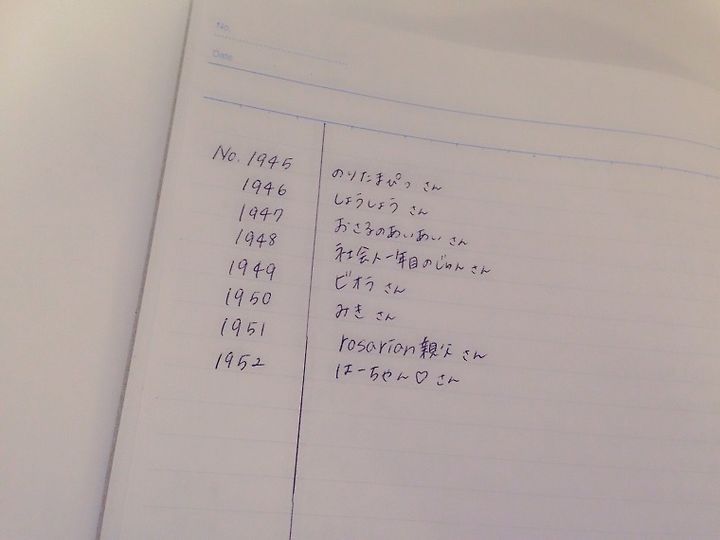 No.
Date
No. 1945 のりたまぴっ さん
1946 しょうしょう さん
1947 おさるのあいあい さん
1948 社会人一年目のじゅん さん
1949 ビオラ さん
1950 みき さん
1951 rosarian親父 さん
1952 はーちゃん♡ さん